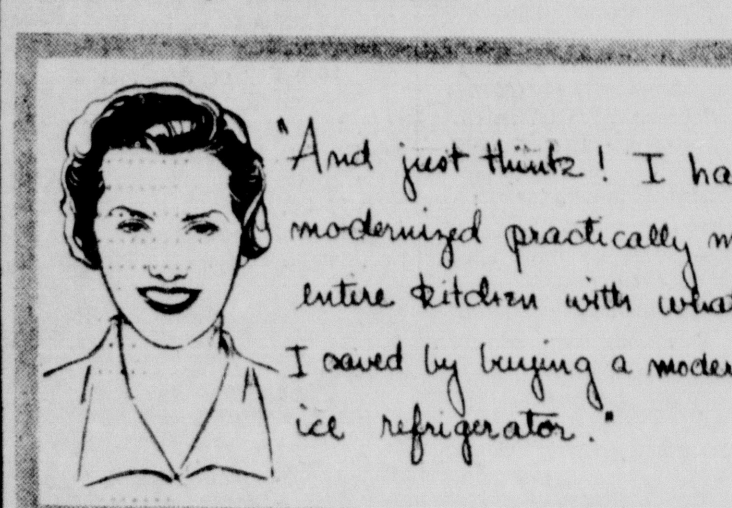 "And just think! I ha
modernized practically m
entire kitchen with wha
I saved by buying a moder
ice refrigerator."